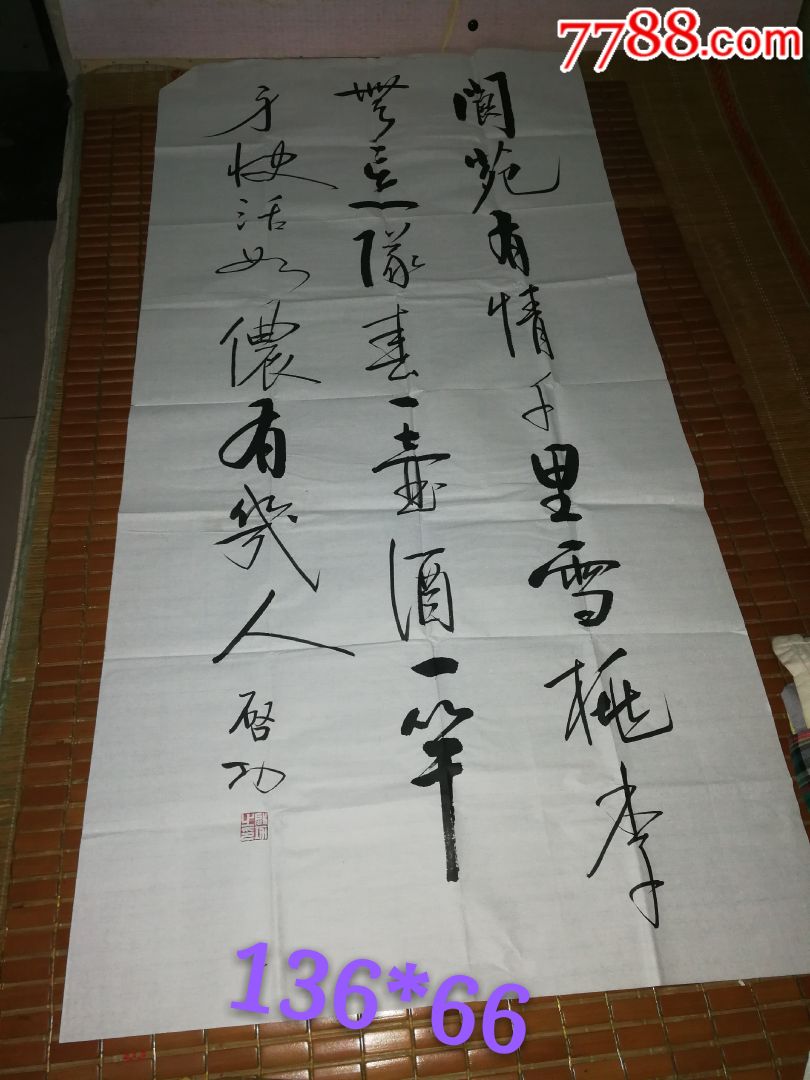 7788.com
閬苑有情千里雪桃李
無言一隊春一壺酒一竿
身快活如儂有幾人
启功
136*66